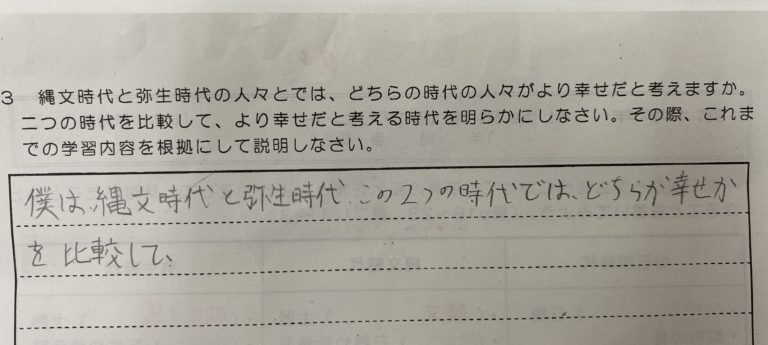 3 縄文時代と弥生時代の人々とでは、どちらの時代の人々がより幸せだと考えますか。
二つの時代を比較して、より幸せだと考える時代を明らかにしなさい。その際、これま
での学習内容を根拠にして説明しなさい。
僕は、縄文時代と弥生時代、この2つの時代では、どちらが幸せか
を比較して、